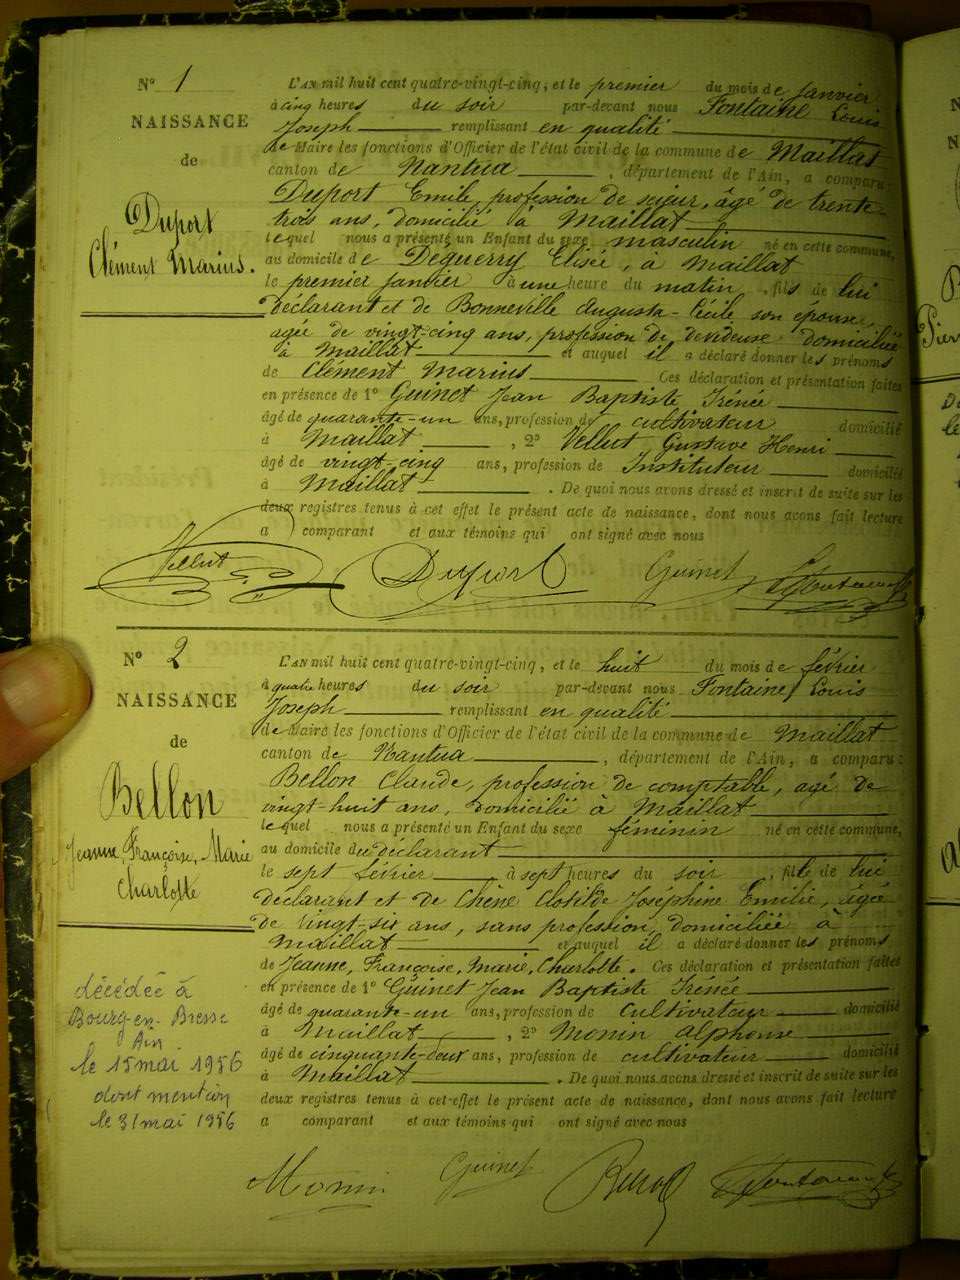 N° 1
NAISSANCE
de
Duport
Clément Marius.
L'AN mil huit cent quatre-vingt-cinq, et le premier du mois de Janvier
à cinq heures du soir par-devant nous Fontaine Louis
Joseph remplissant en qualité
de Maire les fonctions d'Officier de l'état civil de la commune de Maillat
canton de Nantua, département de l'Ain, a comparu
Duport Emile, profession de scieur, âgé de trente-
trois ans, domicilié à Maillat
lequel nous a présenté un Enfant du sexe masculin né en cette commune,
au domicile de Deguerry Elisée, à Maillat
le premier janvier à une heure du matin, fils de lui
déclarant et de Bonneville Augusta-Cécile son épouse,
agée de vingt-cinq ans, profession de devideuse domiciliée
à Maillat et auquel il a déclaré donner les prénoms
de Clément Marius Ces déclaration et présentation faites
en présence de 1° Guinet Jean Baptiste Irénée
âgé de quarante-un ans, profession de cultivateur domicilié
à Maillat, 2° Vellut Gustave Henri
âgé de vingt-cinq ans, profession de Instituteur domicilié
à Maillat. De quoi nous avons dressé et inscrit de suite sur les
deux registres tenus à cet effet le présent acte de naissance, dont nous avons fait lecture
a comparant et aux témoins qui ont signé avec nous
Vellut Duport Guinet Fontaine
N° 2
NAISSANCE
de
Bellon
Jeanne, Françoise, Marie
Charlotte
L'AN mil huit cent quatre-vingt-cinq, et le huit du mois de février
à quatre heures du soir par-devant nous Fontaine Louis
Joseph remplissant en qualité
de Maire les fonctions d'Officier de l'état civil de la commune de Maillat
canton de Nantua, département de l'Ain, a comparu:
Bellon Claude, profession de comptable, agé de
vingt-huit ans, domicilié à Maillat
lequel nous a présenté un Enfant du sexe féminin né en cette commune,
au domicile du déclarant
le sept février à sept heures du soir, fille de lui
déclarant et de Chêne Clotilde Joséphine Emilie, agée
de vingt-six ans, sans profession, domiciliée à
Maillat et auquel il a déclaré donner les prénoms
de Jeanne, Françoise, Marie, Charlotte. Ces déclaration et présentation faites
en présence de 1° Guinet Jean Baptiste Irénée
âgé de quarante-un ans, profession de cultivateur domicilié
à Maillat, 2° Monin Alphonse
âgé de cinquante-deux ans, profession de cultivateur domicilié
à Maillat. De quoi nous avons dressé et inscrit de suite sur les
deux registres tenus à cet effet le présent acte de naissance, dont nous avons fait lecture
a comparant et aux témoins qui ont signé avec nous
décédée à
Bourg-en-Bresse
Ain
le 15 mai 1956
dont mention
le 31 mai 1956
Monin Guinet Fontaine